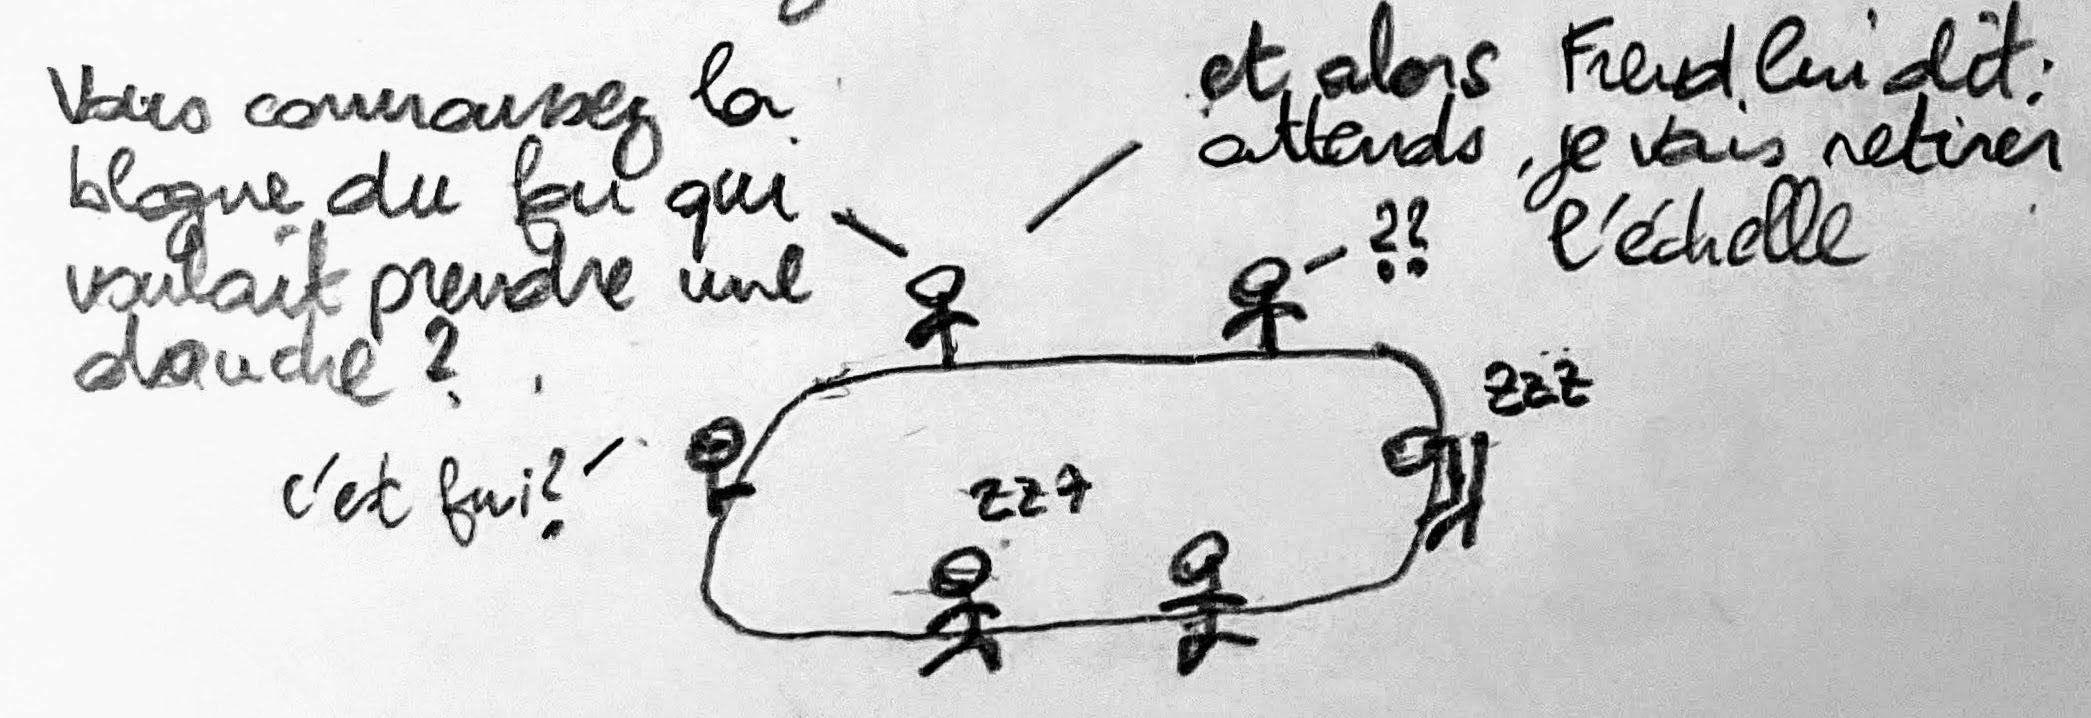 Vous connaissez la
blague du fou qui
voulait prendre une
douche ?
et alors Freud lui dit :
attends, je vais retirer
l'échelle
??
zzz
c'est fini ?
zzz